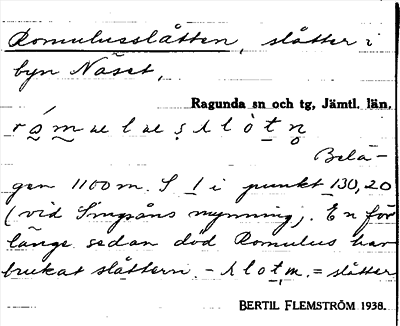 Romulusslåtten, slåtter i
byn Näset,
Ragunda sn och tg, Jämtl. län.
Belä-
gen 1100 m. S 1 i punkt 130,20
(vid Singsåns mynning). En för
länge sedan död Romulus har
brukat slåttern. - slåtter
BERTIL FLEMSTRÖM 1938.